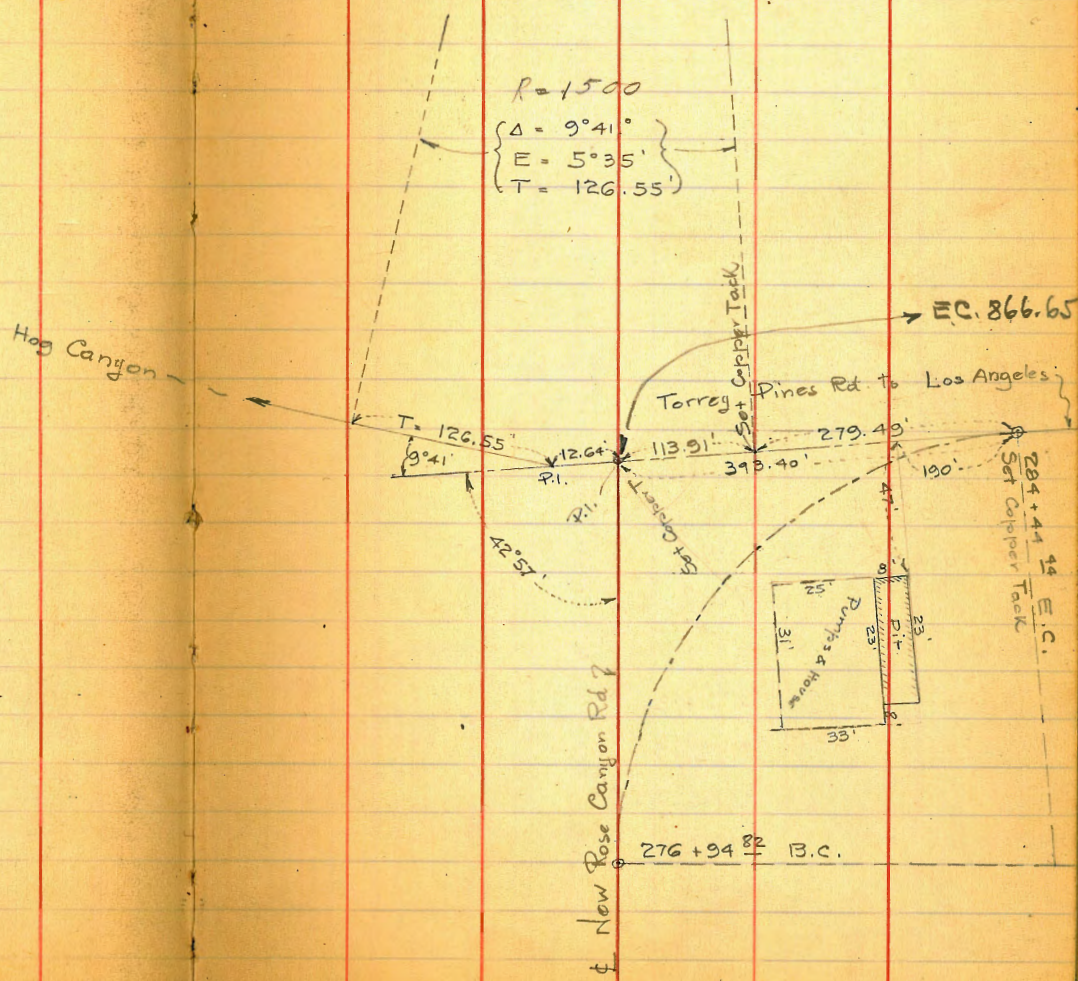 R = 1500
Δ = 9°41'
E = 5°35'
T = 126.55'
Set Copper Tack
E.C. 866.65
Hog Canyon
Torrey Pines Rd to Los Angeles
T = 126.55'
12.64'
113.91'
279.49'
9°41'
P.I.
393.40'
190'
P.I.
Set Copper T
47'
284+44 44 E.C.
Set Copper Tack
42°57'
25'
8
31'
Pumps & House
23'
Pit
23'
8
33'
℄ New Rose Canyon Rd ?
276+94 82 B.C.